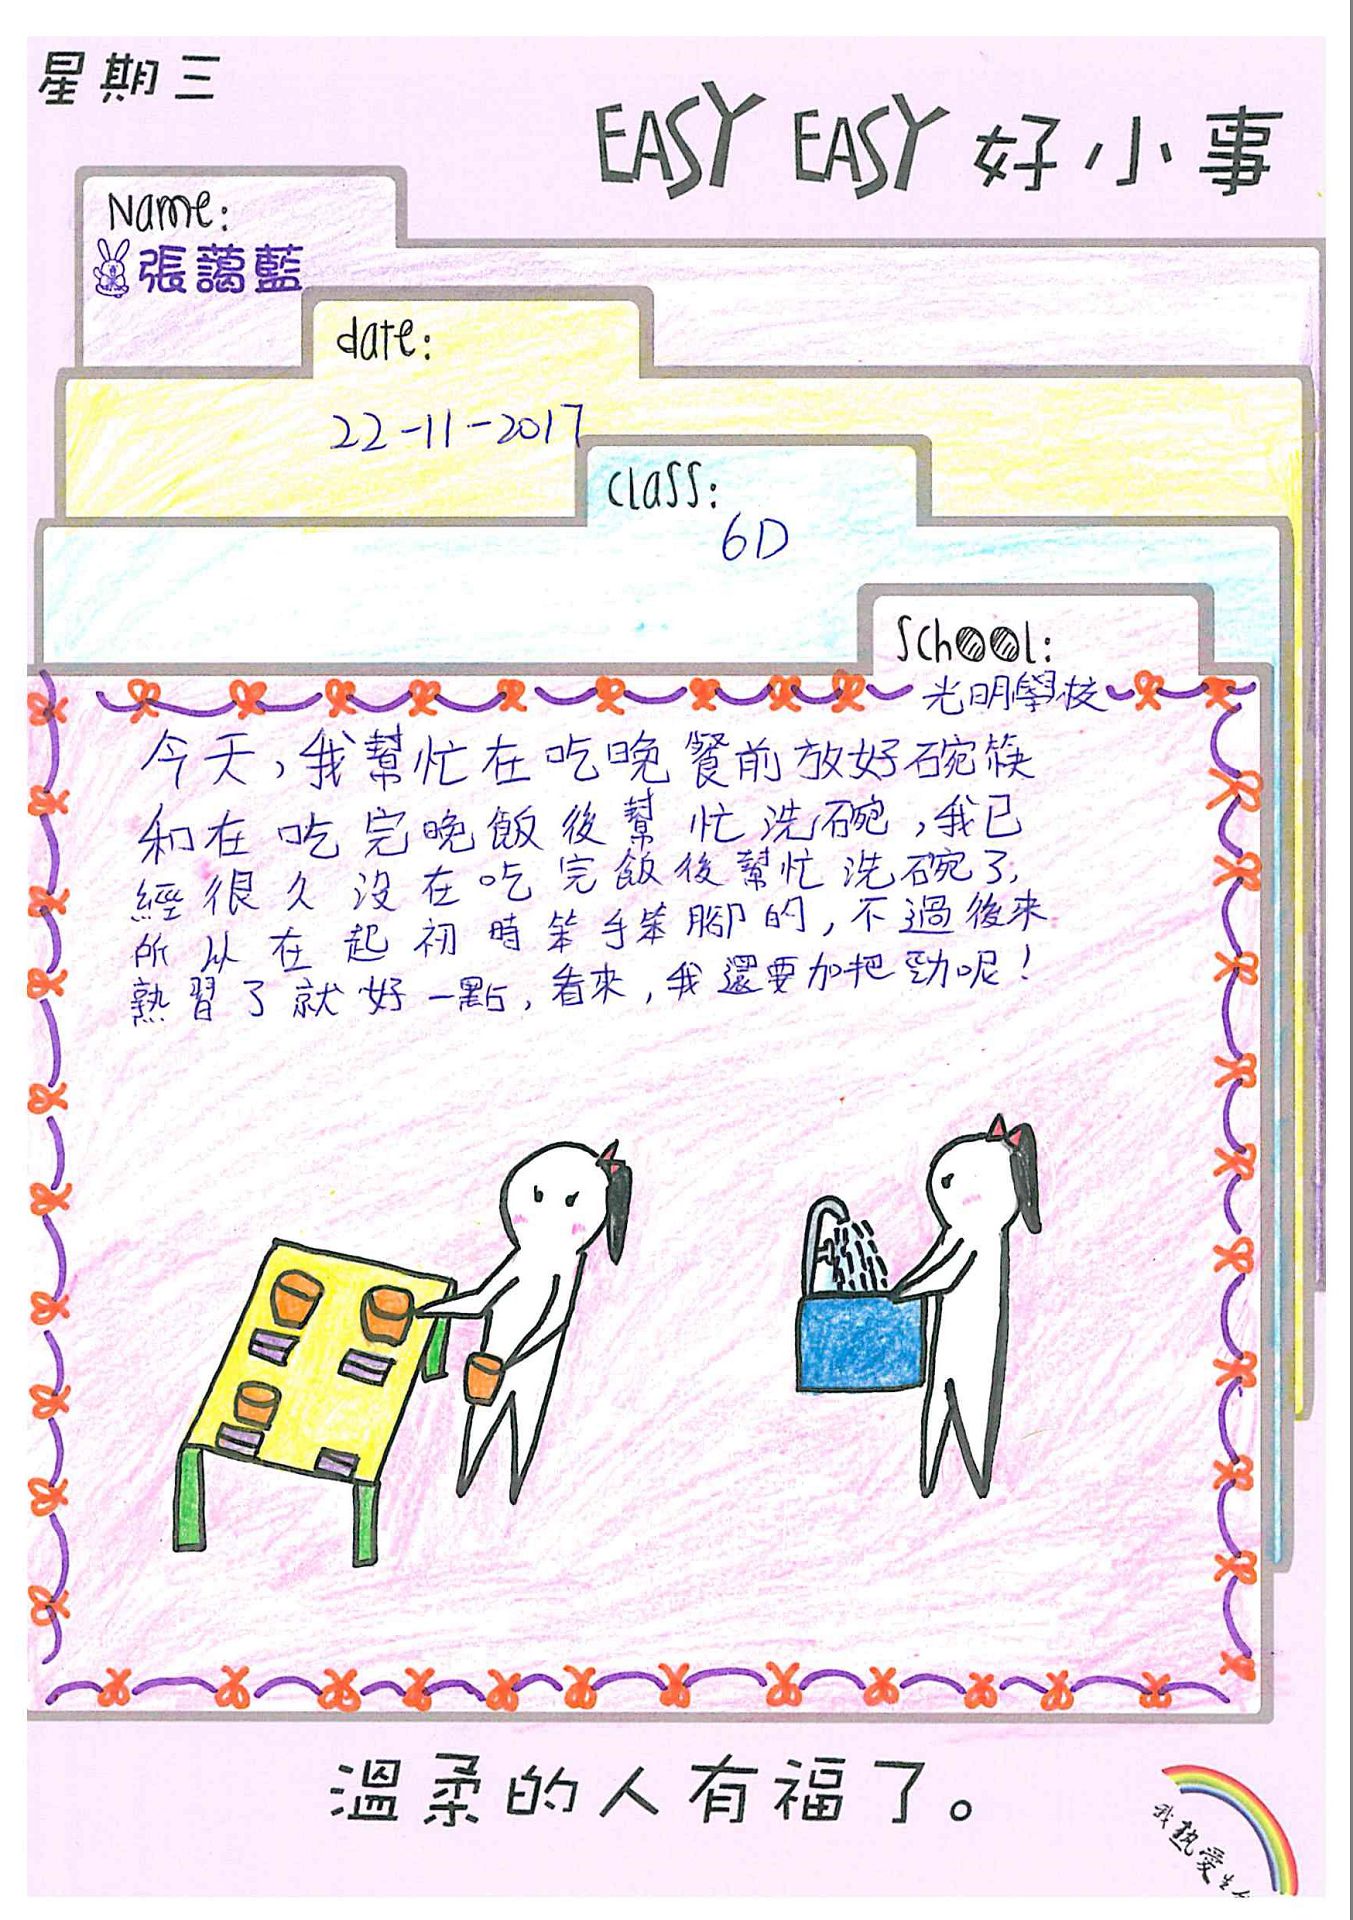 星期三
EASY EASY 好小事
Name:
張藹藍
date:
22-11-2017
Class:
6D
School:
光明學校
今天，我幫忙在吃晚餐前放好碗筷
和在吃完晚飯後幫忙洗碗，我已
經很久沒在吃完飯後幫忙洗碗了，
所以在起初時笨手笨腳的，不過後來
熟習了就好一點，看來，我還要加把勁呢！
溫柔的人有福了。
我熱愛生